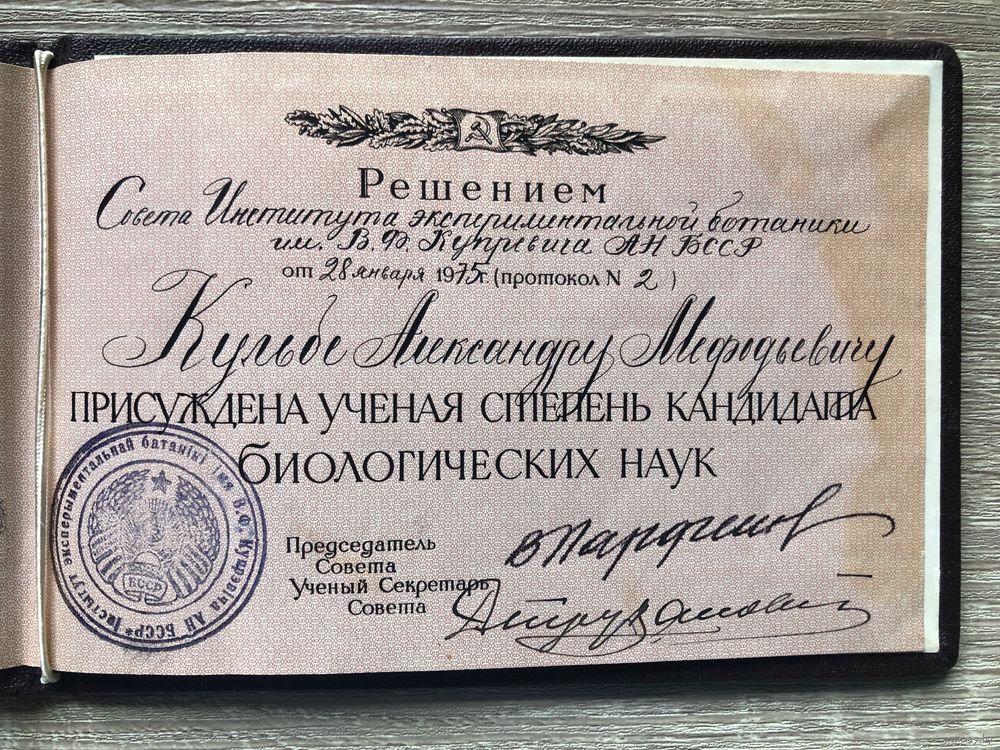 Решением
Совета Института экспериментальной ботаники
им. В.Ф. Купревича АН БССР
от 28 января 1975г. (протокол N 2)
Кульбе Александру Мефодьевичу
ПРИСУЖДЕНА УЧЕНАЯ СТЕПЕНЬ КАНДИДАТА
БИОЛОГИЧЕСКИХ НАУК
Председатель
Совета
В Парфенов
Ученый Секретарь
Совета
Інстытут эксперыментальнай батанікі імя В.Ф. Купрэвіча АН БССР*
БССР